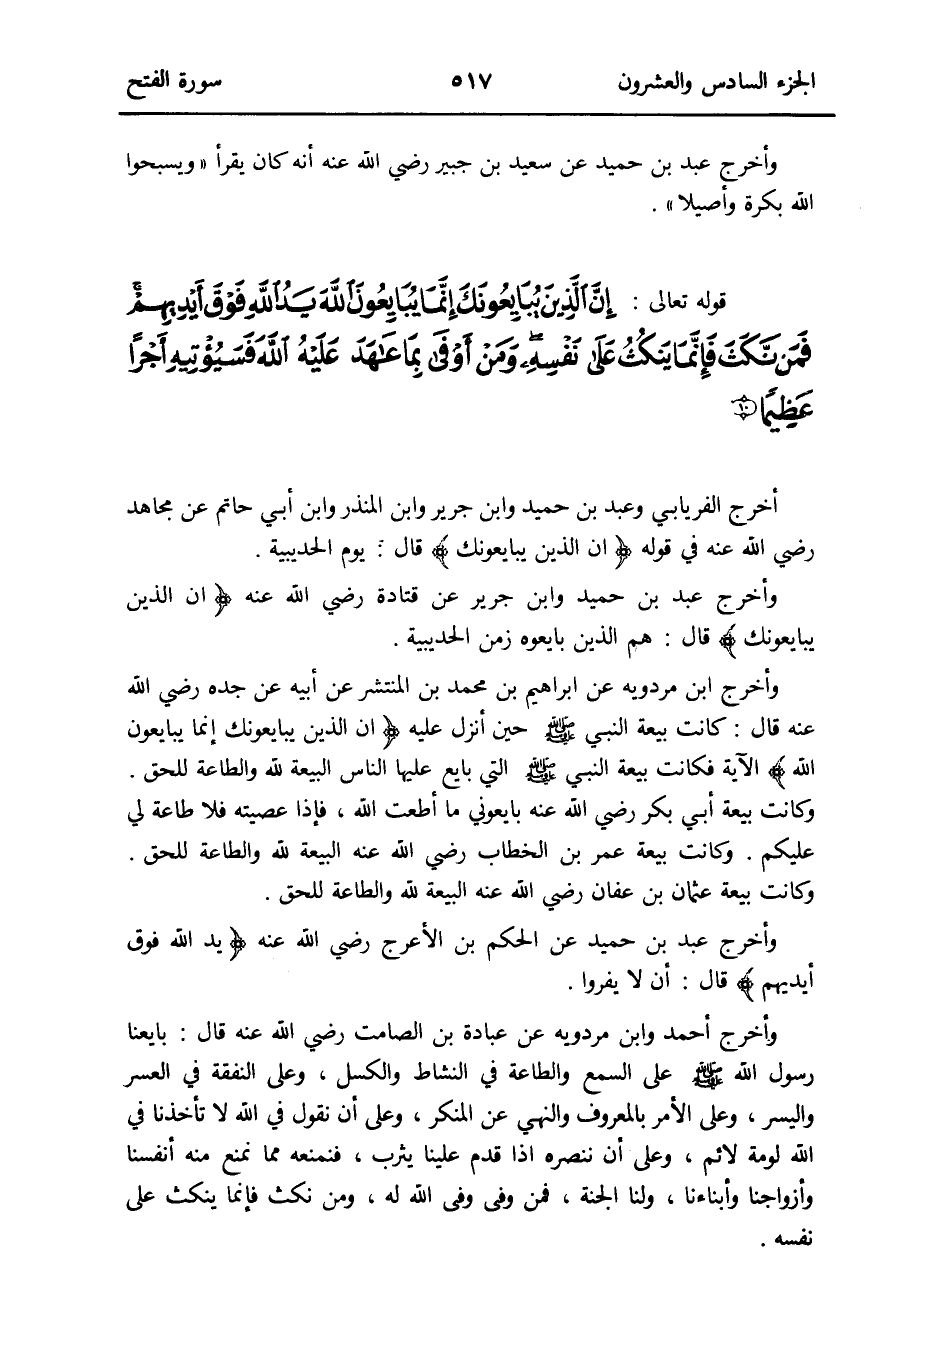 الجزء السادس والعشرون ٥١٧ سورة الفتح
وأخرج عبد بن حميد عن سعيد بن جبير رضي الله عنه أنه كان يقرأ « ويسبحوا
الله بكرة وأصيلا » .
قوله تعالى : إِنَّ ٱلَّذِينَ يُبَايِعُونَكَ إِنَّمَا يُبَايِعُونَ ٱللَّهَ يَدُ ٱللَّهِ فَوْقَ أَيْدِيهِمْ ۚ
فَمَن نَّكَثَ فَإِنَّمَا يَنكُثُ عَلَىٰ نَفْسِهِۦ ۖ وَمَنْ أَوْفَىٰ بِمَا عَٰهَدَ عَلَيْهُ ٱللَّهَ فَسَيُؤْتِيهِ أَجْرًا
عَظِيمًا ١٠
أخرج الفريابي وعبد بن حميد وابن جرير وابن المنذر وابن أبي حاتم عن مجاهد
رضي الله عنه في قوله ﴿ ان الذين يبايعونك ﴾ قال : يوم الحديبية .
وأخرج عبد بن حميد وابن جرير عن قتادة رضي الله عنه ﴿ ان الذين
يبايعونك ﴾ قال : هم الذين بايعوه زمن الحديبية .
وأخرج ابن مردويه عن ابراهيم بن محمد بن المنتشر عن أبيه عن جده رضي الله
عنه قال : كانت بيعة النبي ﷺ حين أنزل عليه ﴿ ان الذين يبايعونك إنما يبايعون
الله ﴾ الآية فكانت بيعة النبي ﷺ التي بايع عليها الناس البيعة لله والطاعة للحق .
وكانت بيعة أبي بكر رضي الله عنه بايعوني ما أطعت الله ، فإذا عصيته فلا طاعة لي
عليكم . وكانت بيعة عمر بن الخطاب رضي الله عنه البيعة لله والطاعة للحق .
وكانت بيعة عثمان بن عفان رضي الله عنه البيعة لله والطاعة للحق .
وأخرج عبد بن حميد عن الحكم بن الأعرج رضي الله عنه ﴿ يد الله فوق
أيديهم ﴾ قال : أن لا يفروا .
وأخرج أحمد وابن مردويه عن عبادة بن الصامت رضي الله عنه قال : بايعنا
رسول الله ﷺ على السمع والطاعة في النشاط والكسل ، وعلى النفقة في العسر
واليسر ، وعلى الأمر بالمعروف والنهي عن المنكر ، وعلى أن نقول في الله لا تأخذنا في
الله لومة لائم ، وعلى أن ننصره اذا قدم علينا يثرب ، فنمنعه مما نمنع منه أنفسنا
وأزواجنا وأبناءنا ، ولنا الجنة ، فمن وفى وفى الله له ، ومن نكث فإنما ينكث على
نفسه .